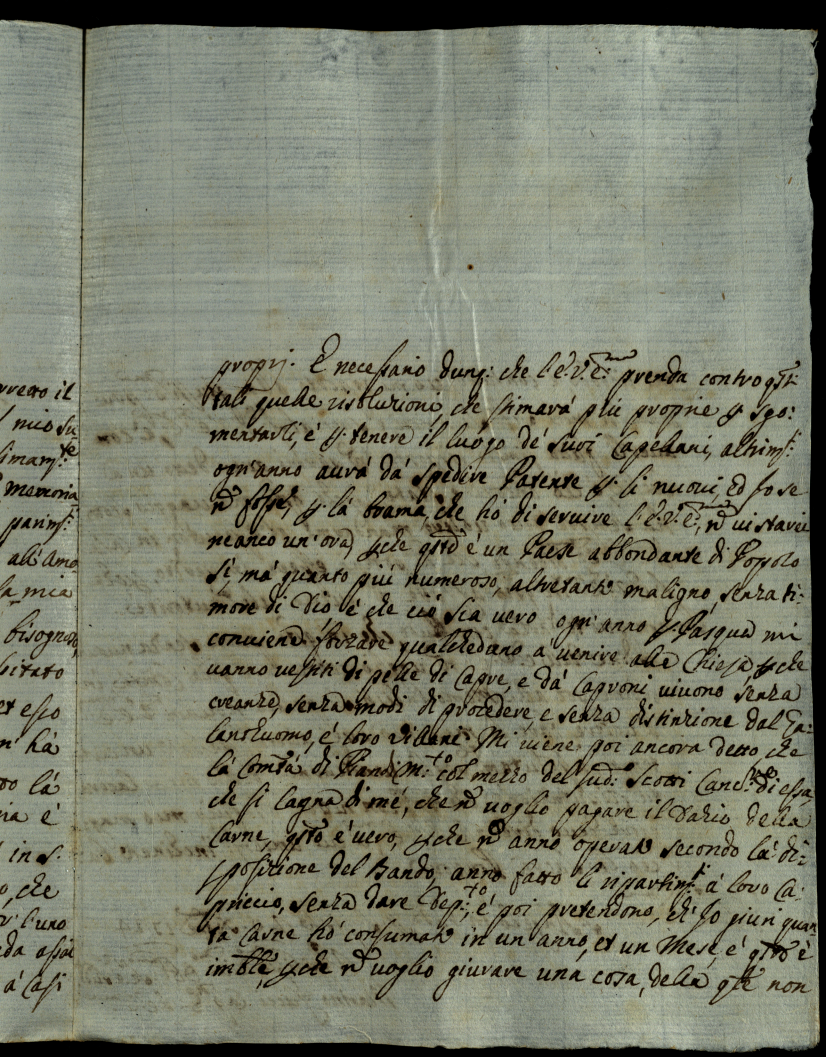 rretto il
mio su
simam.te
memoria
parim.ti
all'Amo
la mia
bisogno,
bitato
et esso
n' hà
to là
ria è
in s.
o, che
r l'uno
da assai
à casi
proprj. E necessario dunq: che l'E.V.E:ma prenda contro q̃sti
tali quelle risoluzioni, che stimarà più proprie p sgo:
mentarli, è p tenere il luogo de' suoi Capellani, altrim.ti:
ogn'anno aurà dà spedire Patente p li nuoui, ed Jo se
nõ fosse, p là brama, che hò di seruire l'E.V.E:ma, nõ ui starei
neanco un'ora, pche q̃sto è un Paese abbondante di Popolo
sì, mà quanto più numeroso, altretanto maligno, senza ti:
more di Dio, è che ciò sia uero ogn'anno p Pasqua mi
conuiene forzare qualcheduno a uenire alla Chiesa, pche
uanno uestiti di pelle di Capre, e dà Caproni uiuono senza
creanze, senza modi di procedere, e senza distinzione dal Ga:
lantuomo, è loro Villani. Mi uiene poi ancora detto, che
là Com.tà di Piandim.to col mezzo del sud: Scotti Canc.re di essa,
che si lagna di mè, che nõ uoglio pagare il Dazio della
Carne, q̃sto è uero, pche nõ anno operato secondo là di:
sposizione del Bando, anno fatto li ripartim.ti à loro Ca
priccio, senza dare Dep.to, è poi pretendono, ch'Jo giuri quan
ta Carne hò consumato in un anno, et un Mese, è q̃sto è
imb̃le, pche nõ uoglio giurare una cosa, della q̃le non